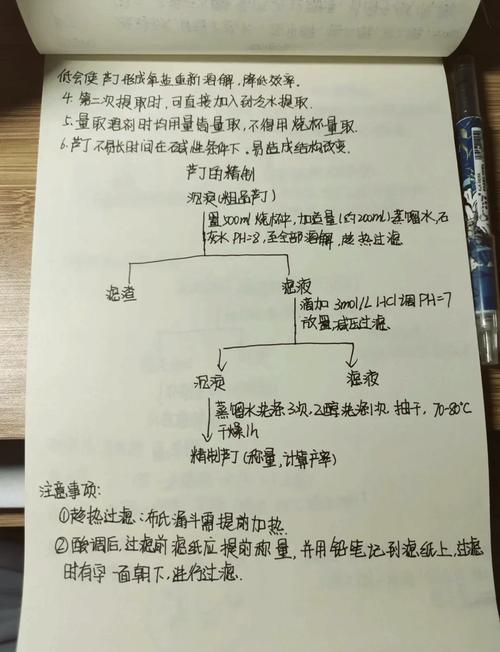 低会使芦丁形成𨦡盐重新溶解,降低效率.
4.第二次提取时,可直接加入到冷水提取.
5.量取溶剂时均用量筒量取,不得用烧杯量取.
6.芦丁不得长时间在碱性条件下,易造成结构改变.
芦丁的精制
沉淀(粗品芦丁)
置500ml烧杯中,加适量(约200ml)蒸馏水,石
灰水PH=8,至全部溶解,趁热过滤
滤渣
滤液
滴加 3mol/L HCl调PH=7
放置,减压过滤
沉淀
滤液
蒸馏水洗涤3次,乙醇洗涤1次,抽干,70-80℃
干燥1h
精制芦丁(称量,计算产率)
注意事项:
①趁热过滤:布氏漏斗需提前加热.
②酸调后,过滤前滤纸应提前称量,并用铅笔记到滤纸上,过滤
时有字一面朝下,进行过滤.